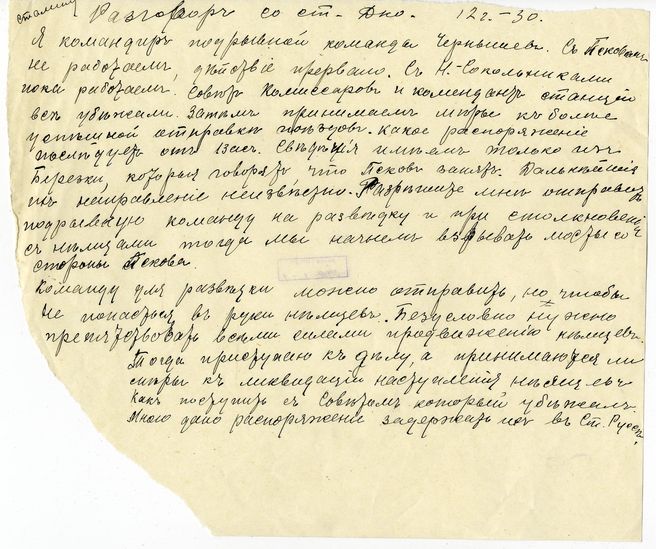 Разговоръ со ст. Дно. 12 ч.-30.
Я командиръ подрывной команды Чернышевъ. Съ Псковомъ
не работаемъ, дѣйствіе прервано. Съ Н-Сокольниками
пока работаемъ. Совѣтъ Комиссаровъ и комендантъ станціи
всѣ убѣжали. Затѣмъ принимаемъ мѣры къ болѣе
успѣшной отправкѣ поѣздовъ. Какое распоряженіе
послѣдуетъ отъ Васъ. Свѣденія имѣемъ только изъ
Березки, которыя говорятъ, что Псковъ занятъ. Дальнѣйшія
ихъ направленіе неизвѣстно. Разрѣшите мнѣ отправить
подрывную команду на развѣдку и при столкновеніи
съ нѣмцами тогда мы начнемъ взрывать мосты со
стороны Пскова.
Команду для развѣдки можно отправить, но чтобы
не попасться въ руки нѣмцевъ. Безусловно нужно
препятствовать всѣми силами продвиженію нѣмцевъ.
Тогда приступаю къ дѣлу, а принимаются ли
мѣры къ ликвидаціи наступленія нѣмцевъ
какъ поступить съ Совѣтомъ который убѣжалъ.
Мною дано распоряженіе задержать ихъ въ Ст. Руссѣ.